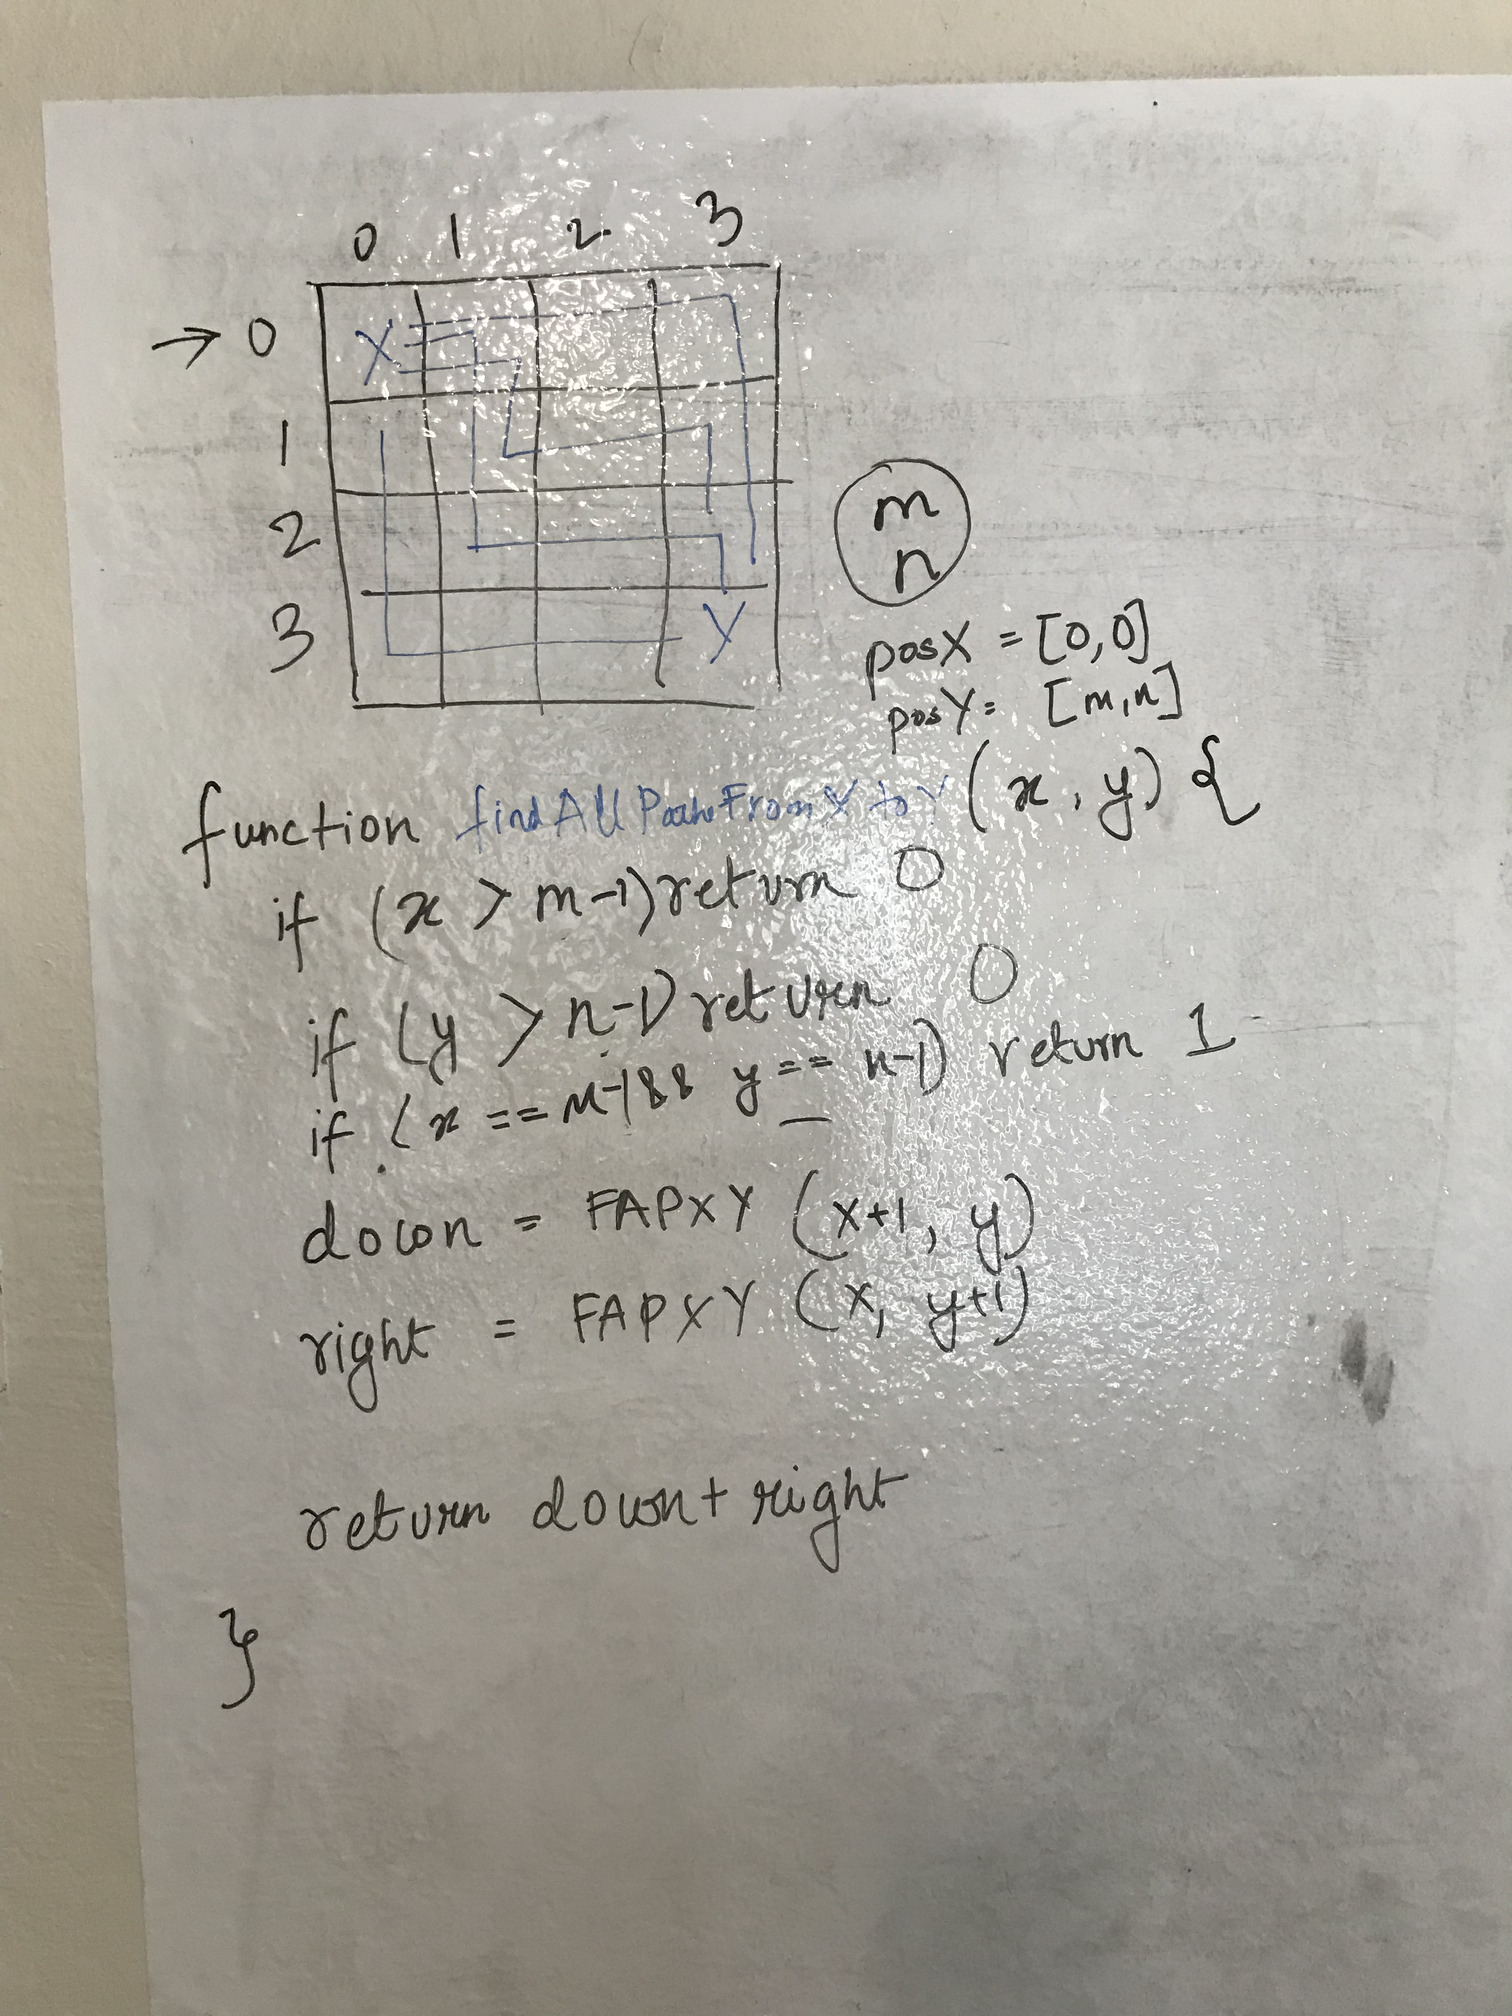 0 1 2 3
→ 0 X
1
2
3 Y
m
n
posX = [0,0]
posY = [m,n]
function findAllPathsFromXtoY (x, y) {
if (x > m-1) return 0
if (y > n-1) return 0
if (x == m-1 && y == n-1) return 1
down = FAPXY (x+1, y)
right = FAPXY (x, y+1)
return down + right
}